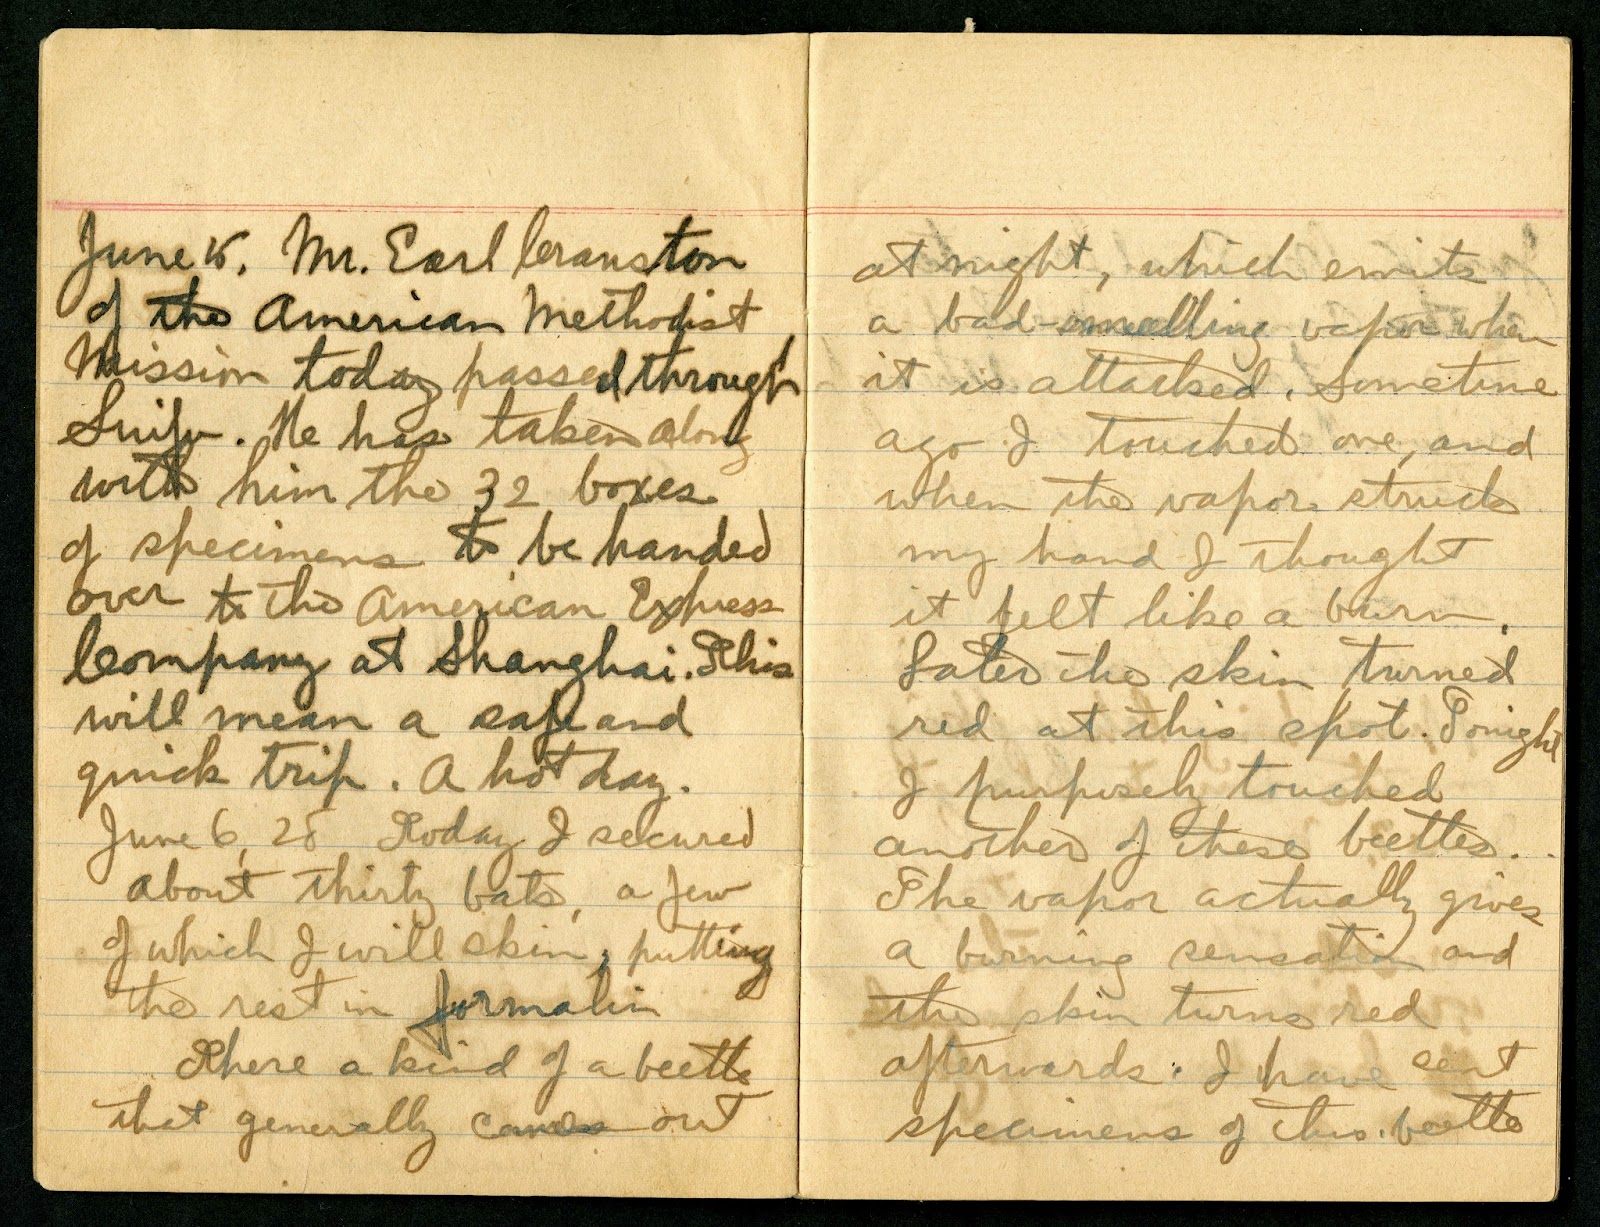 June 5. Mr. Earl Cranston
of the American Methodist
Mission today passed through
Suifu. He has taken along
with him the 32 boxes
of specimens to be handed
over to the American Express
Company at Shanghai. This
will mean a safe and
quick trip. A hot day.
June 6, 25 Today I secured
about thirty bats, a few
of which I will skin, putting
the rest in formalin
There a kind of a beetle
that generally comes out
at night, which emits
a bad-smelling vapor when
it is attacked. Sometime
ago I touched one, and
when the vapor struck
my hand I thought
it felt like a burn.
Later the skin turned
red at this spot. Tonight
I purposely touched
another of these beetles.
The vapor actually gives
a burning sensation and
the skin turns red
afterwards. I have sent
specimens of this beetle